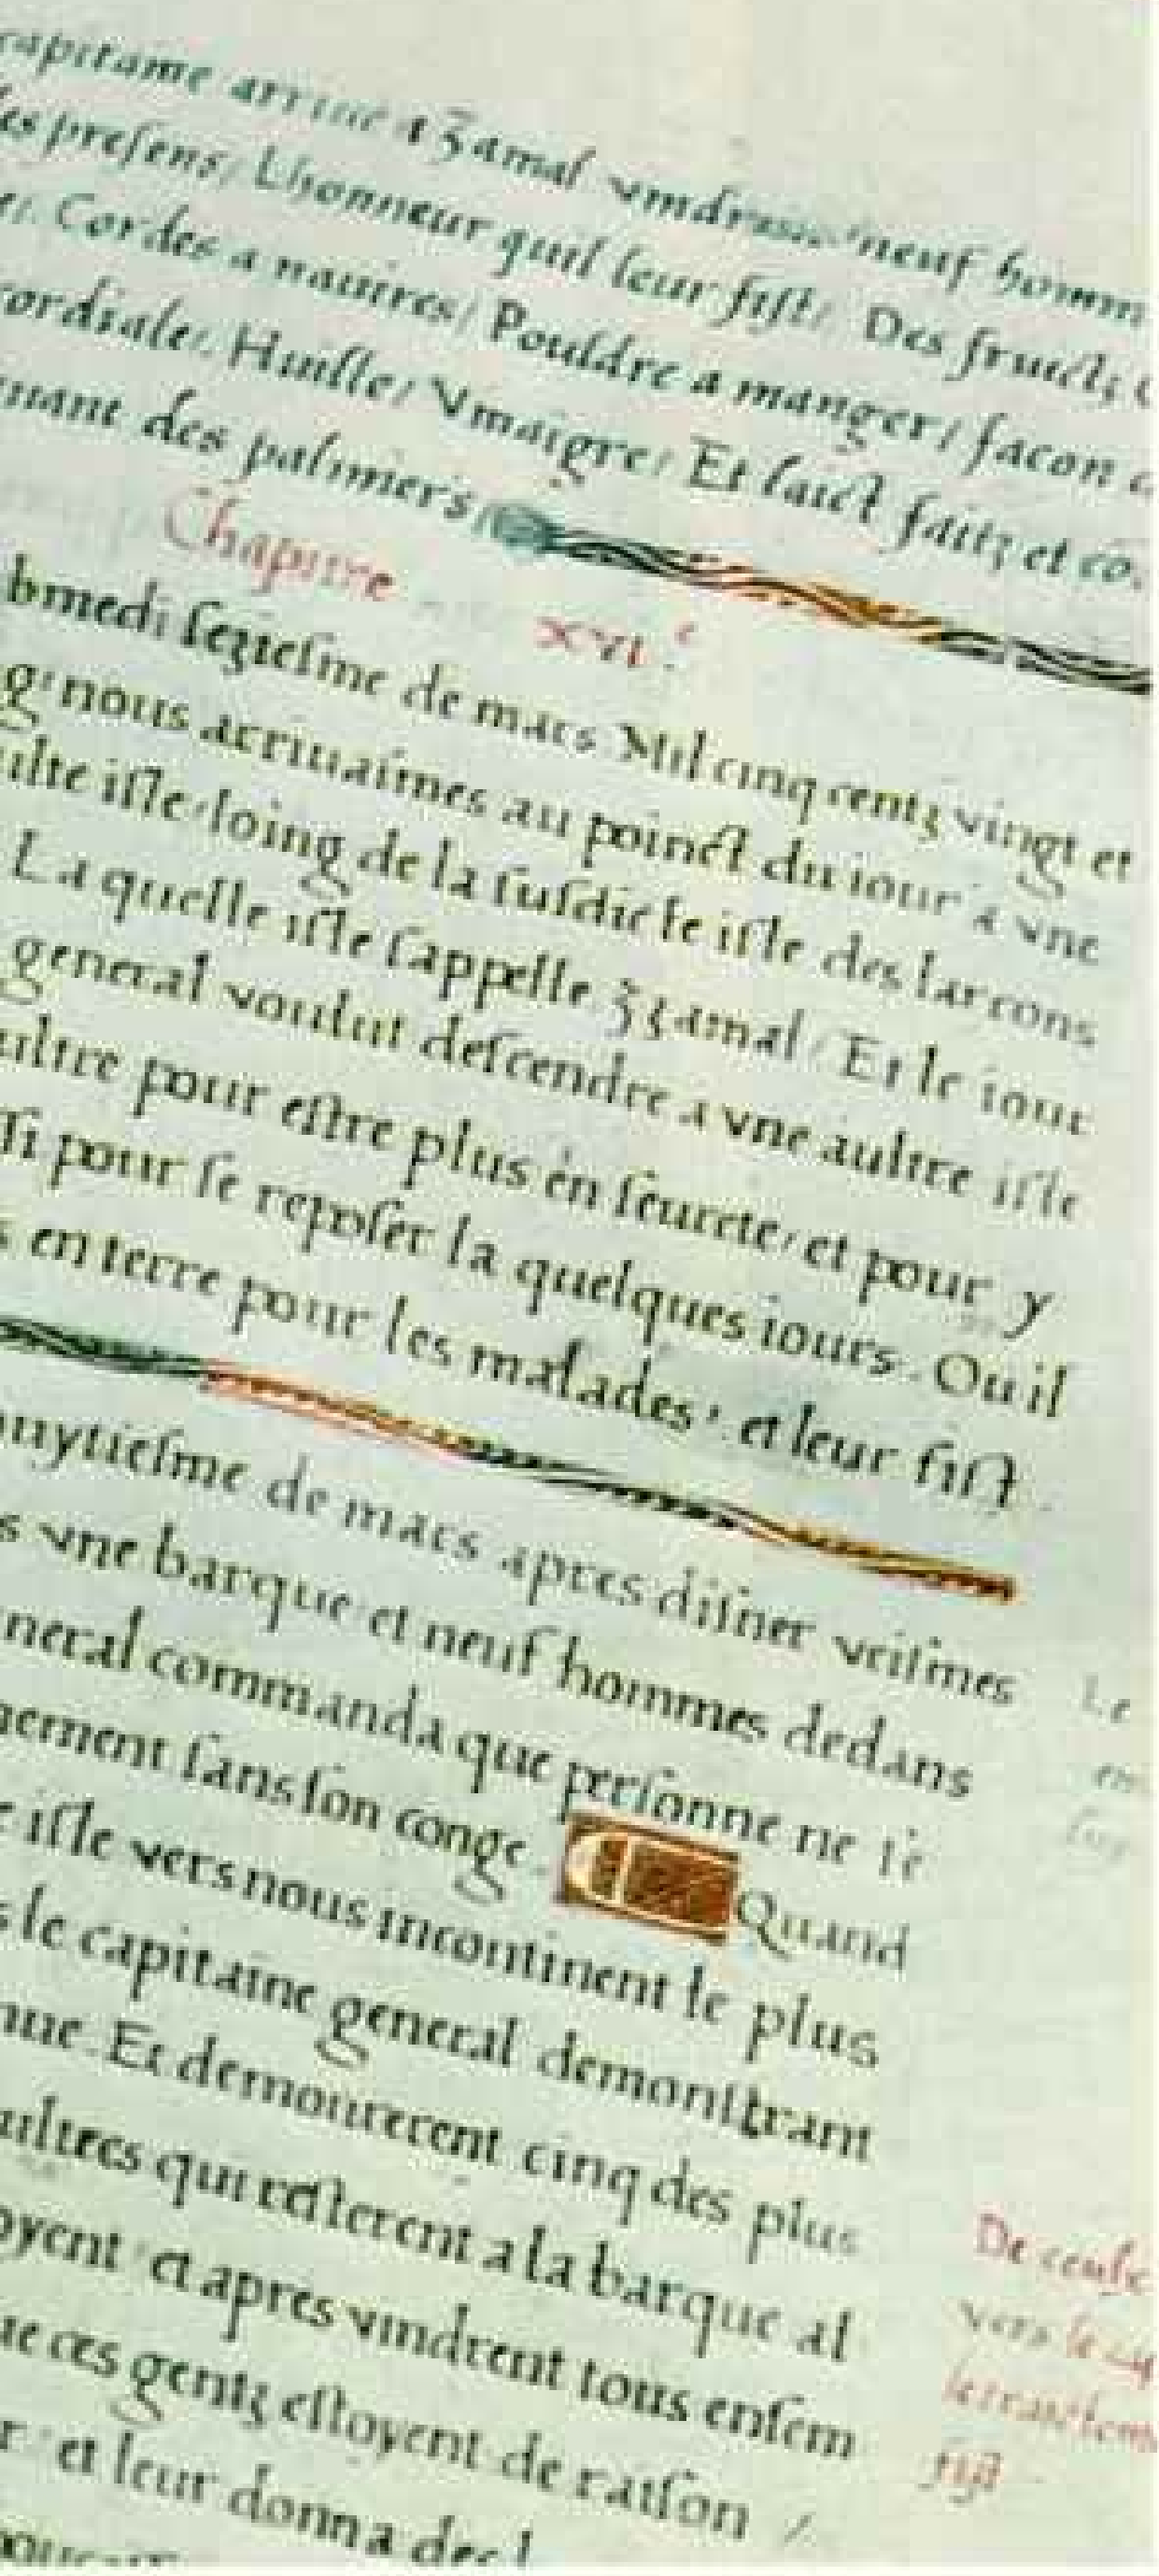 capitaine arriue a Zamal vindrent neuf homm
les presens/ Lhonneur quil leur fist/. Des fruictz
e/. Cordes a nauires/ Pouldre a manger/ facon
cordiale/. Huille/ Vinaigre/ Et laict faitz et co
nant des palmiers/
Chapitre xvi.e
bmedi seziesme de mars Mil cinq centz vingt et
g/ nous arriuasmes au poinct du iour a vne
ulte isle/ loing de la susdicte isle des larrons
La quelle isle sappelle Zzamal/ Et le iour
general voulut descendre a vne aultre isle
ultre pour estre plus en seurete/ et pour y
ssi pour se reposer la quelques iours. Ou il
s en terre pour les malades/. et leur fist
huytiesme de mars apres disner veismes
s vne barque et neuf hommes dedans
neral commanda que personne ne se
nement sans son conge. Quand
e isle vers nous incontinent le plus
s le capitaine general demonstrant
nue. Et demourerent cinq des plus
ultres qui resterent a la barque al
oyent/ et apres vindrent tous ensem
ue ces gentz estoyent de raison /
r/ et leur donna de
Le
en
De ceulx
vers le
fist